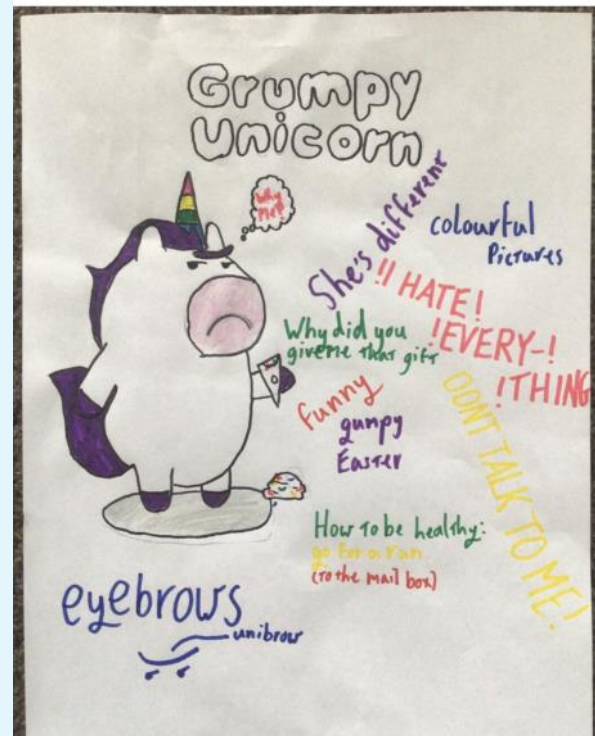 Grumpy
Unicorn
Why
me?
She's different
colourful
Pictures
!I HATE!
!EVERY-!
!THING
Why did you
giveme that gift
funny
gumpy
Easter
DONT TALK TO ME!
How To be healthy:
go for a run
(to the mail box)
eyebrows
unibrow